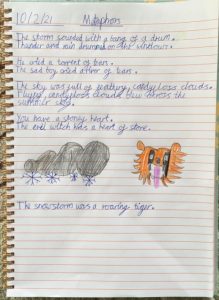 10/2/21 Metaphors
The storm sounded with a bang of a drum.
Thunder and rain drummed on the windows.
He cried a torrent of tears.
The sad boy cried a river of tears.
The sky was full of feathery, candyfloss clouds.
Fluffy candyfloss clouds blew across the
summer sky.
You have a stoney heart.
The evil witch has a heart of stone.
The snowstorm was a roaring tiger.